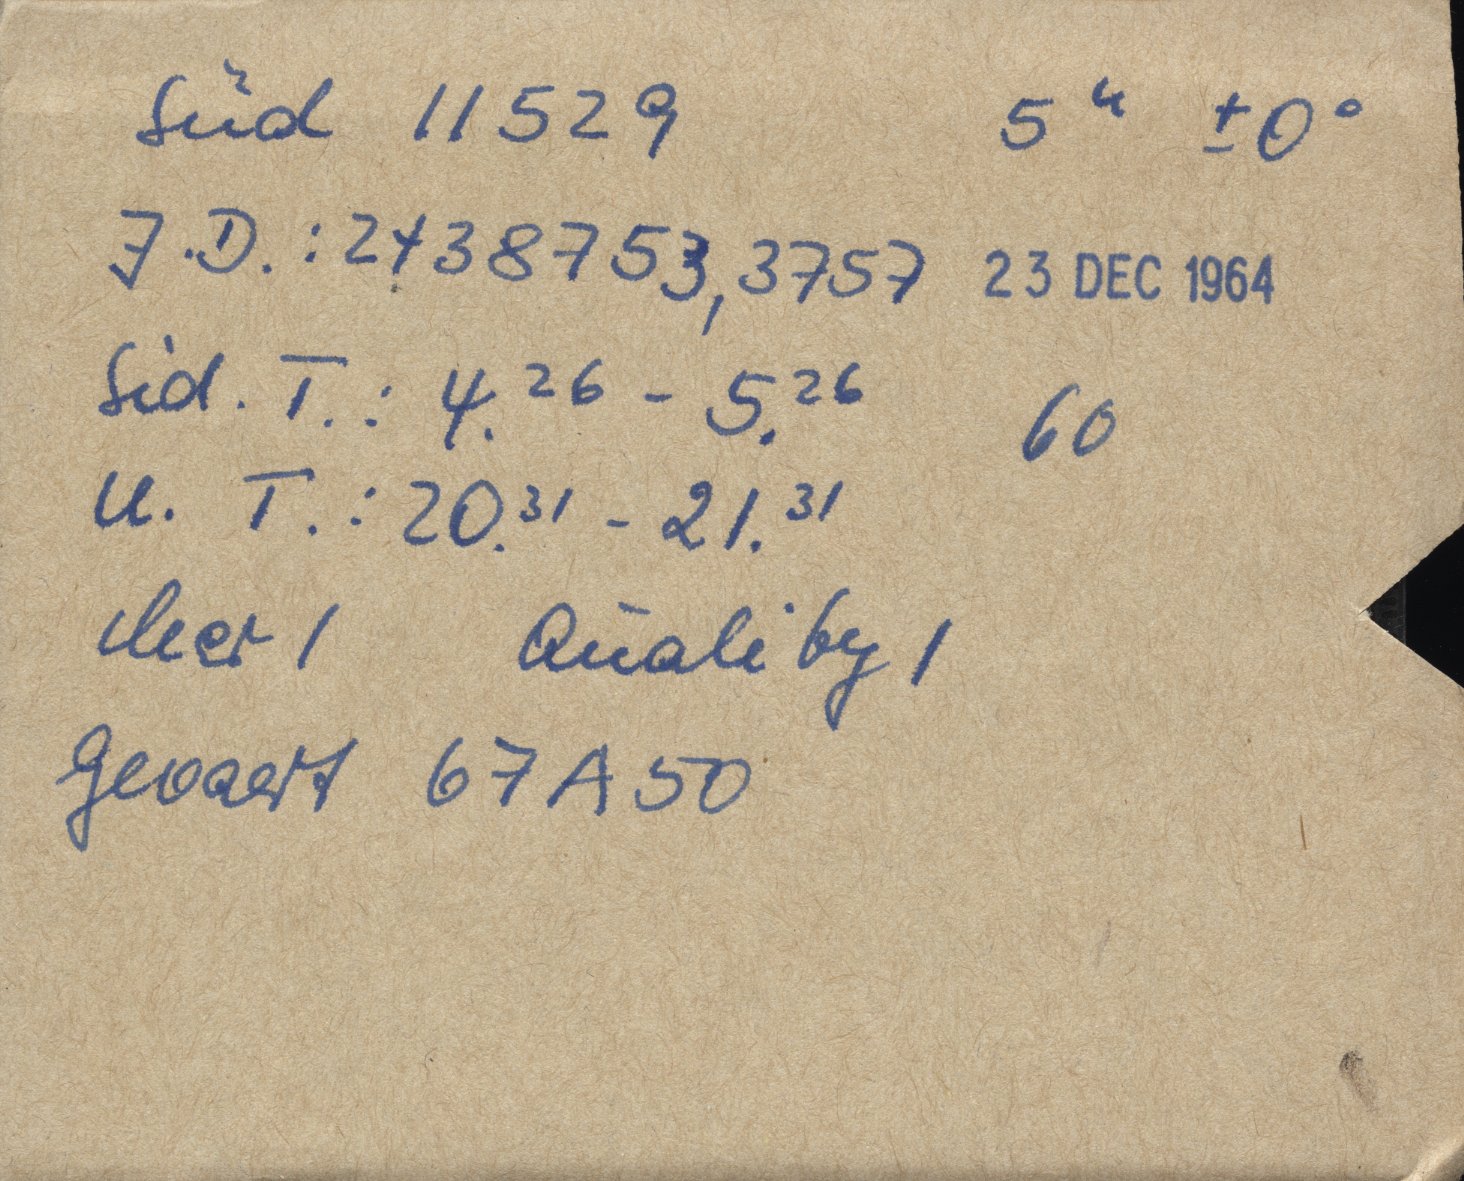 Süd 11529 5ʰ ±0°
J.D.: 2438753,3757 23 DEC 1964
Sid. T.: 4.²⁶ - 5.²⁶ 60
U. T.: 20.³¹ - 21.³¹
1 Quality 1
Gevaert 67A50